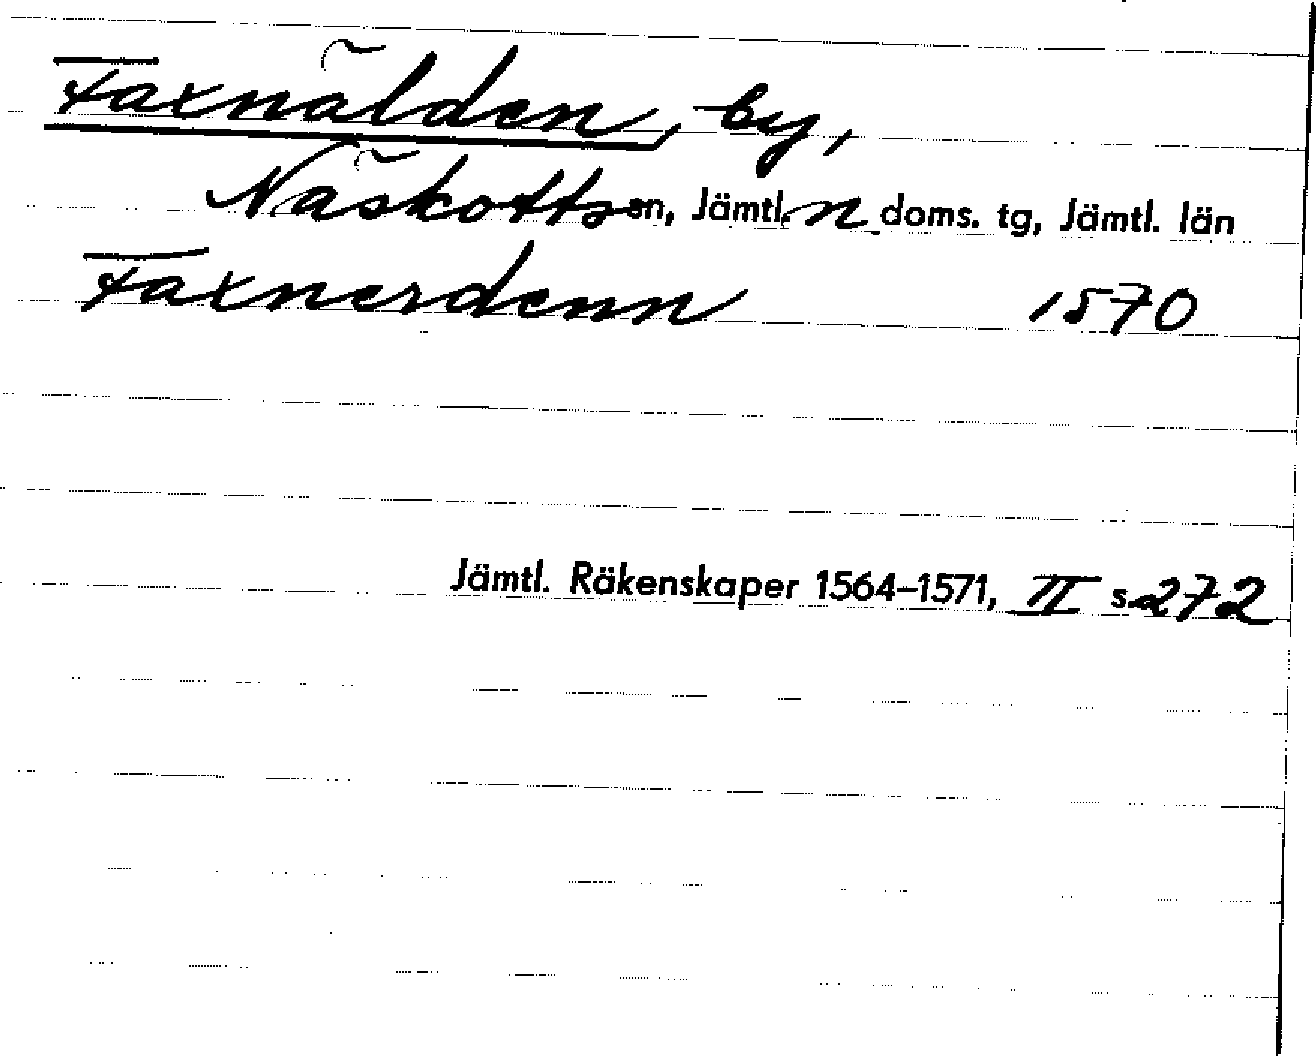 Faxnälden, by,
Näskotts sn, Jämtl. n doms. tg, Jämtl. län
Faxnerdenn 1570
Jämtl. Räkenskaper 1564–1571, II s. 272